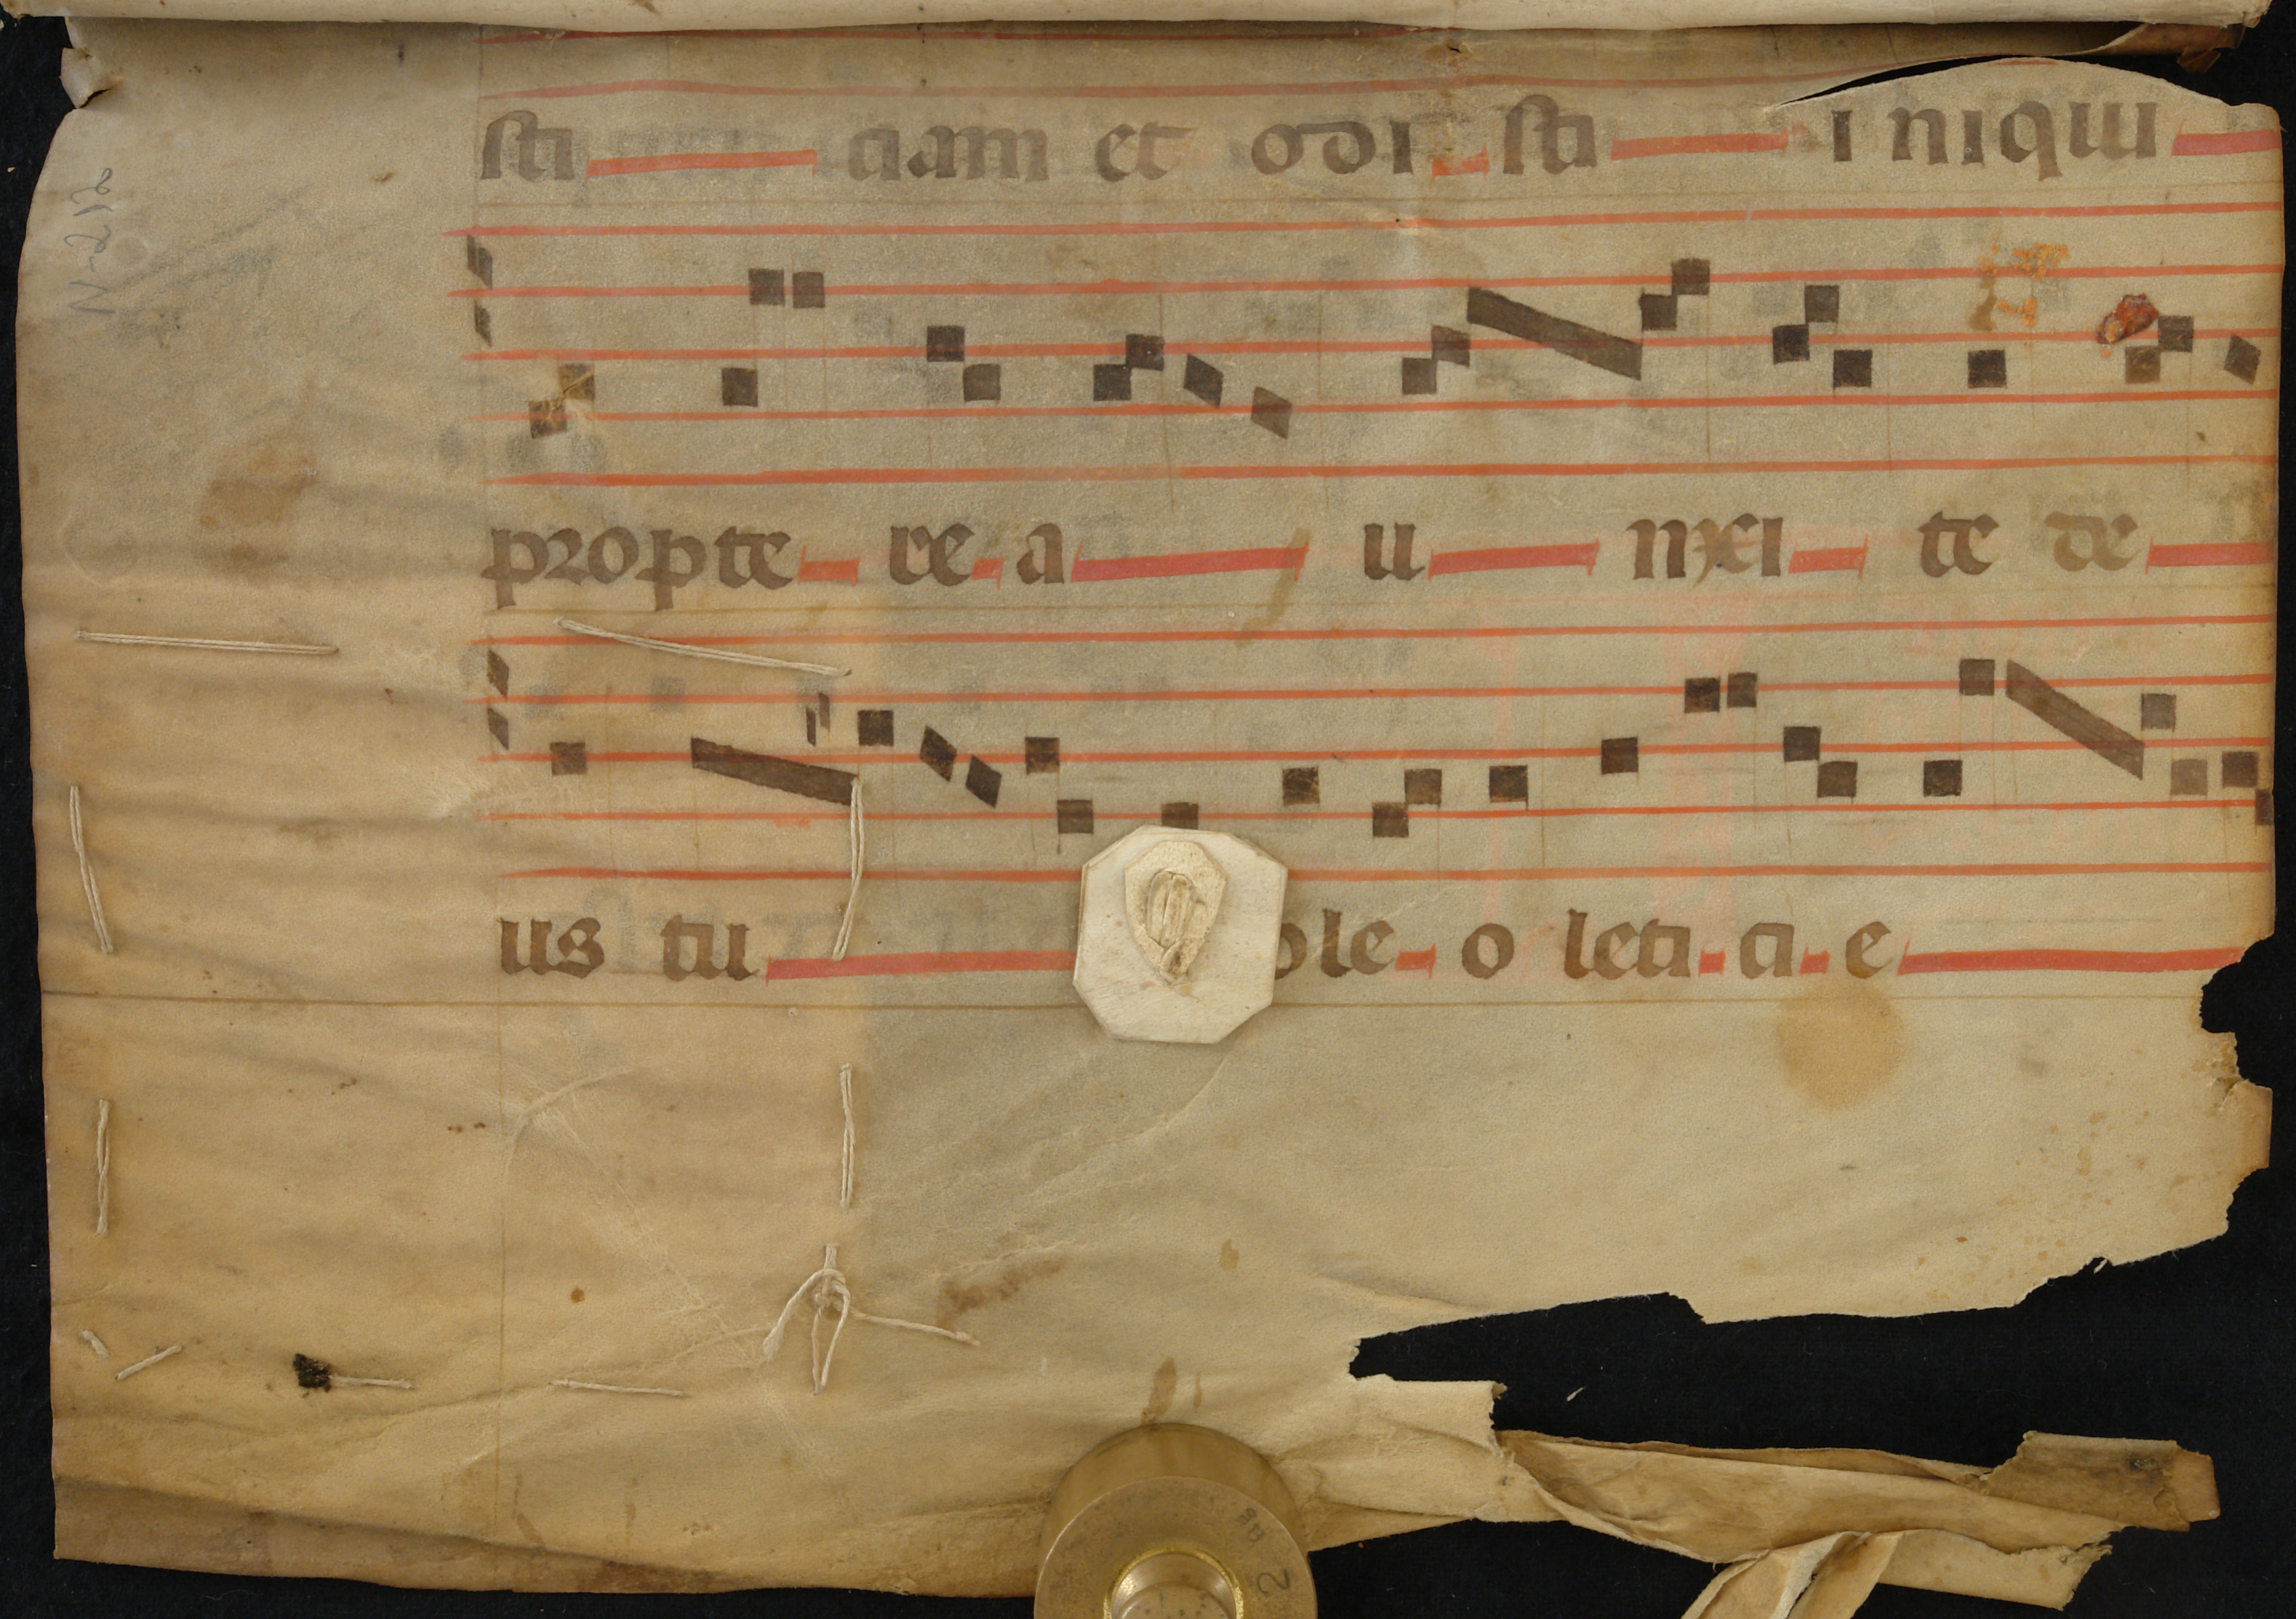 sti ciam et odi sti iniqui
propte re a u nxi te de
us tu ole o leti ci e